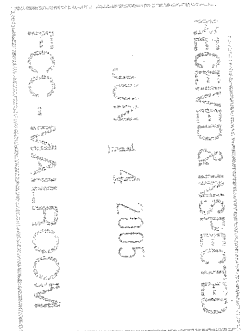 RECEIVED & INSPECTED
JUN 4 2005
FCC - MAILROOM